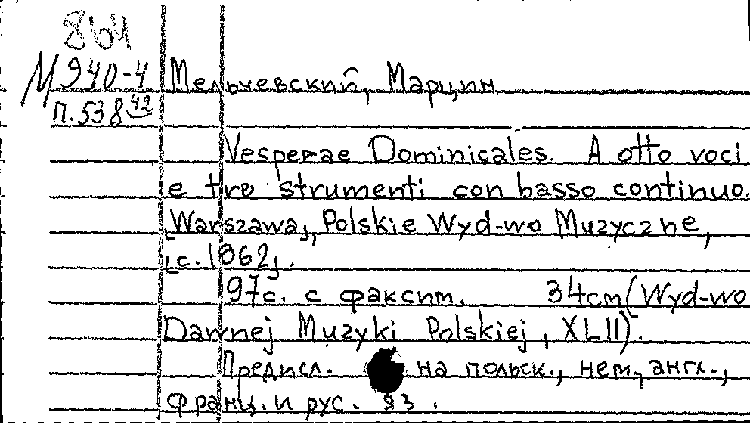 М940-4
Мельчевский, Марцин
П.538 42
Vesperae Dominicales. A otto voci
e tre strumenti con basso continuo.
[Warszawa], Polskie Wyd-wo Muzyczne,
[c. 1962].
97с. с факсим. 34cm (Wyd-wo
Dawnej Muzyki Polskiej, XLII).
Предисл. на польск., нем., англ.,
франц. и рус. яз.